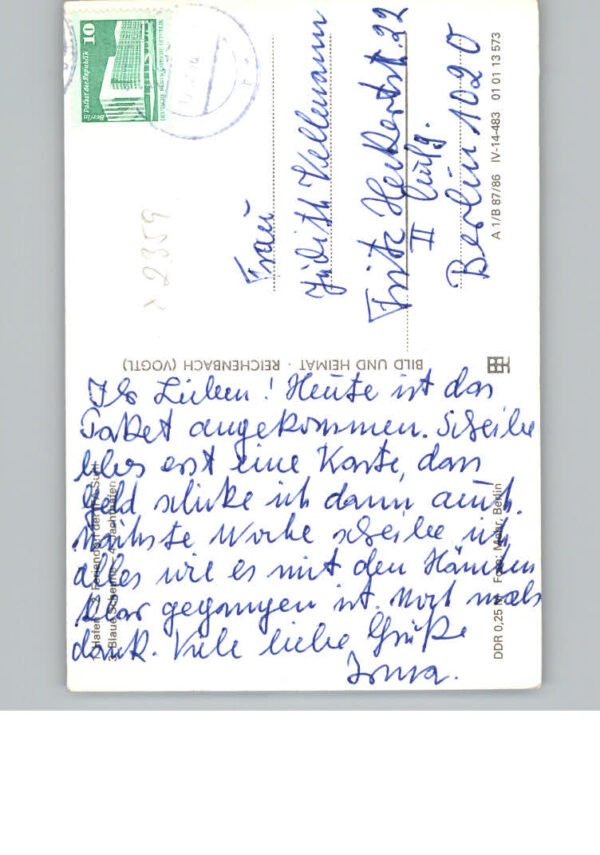 Ihr Lieben! Heute ist das
Paket angekommen. Schreibe
erst eine Karte, das
Geld schicke ich dann auch.
Nächste Woche schreibe ich
alles wie es mit den Händen
klar gegangen ist. Noch mals
dank. Viele liebe Grüße
Irma.
Frau
Judith Kellemann
Fritz Heckertstr. 22
II Aufg.
Berlin 1020
A 1/B 87/86 IV-14-483 01 01 13 573
BILD UND HEIMAT · REICHENBACH (VOGTL)
DDR 0,25 M Foto: Mohr, Berlin
10
Palast der Republik
Berlin
DEUTSCHE DEMOKRATISCHE REPUBLIK
2359